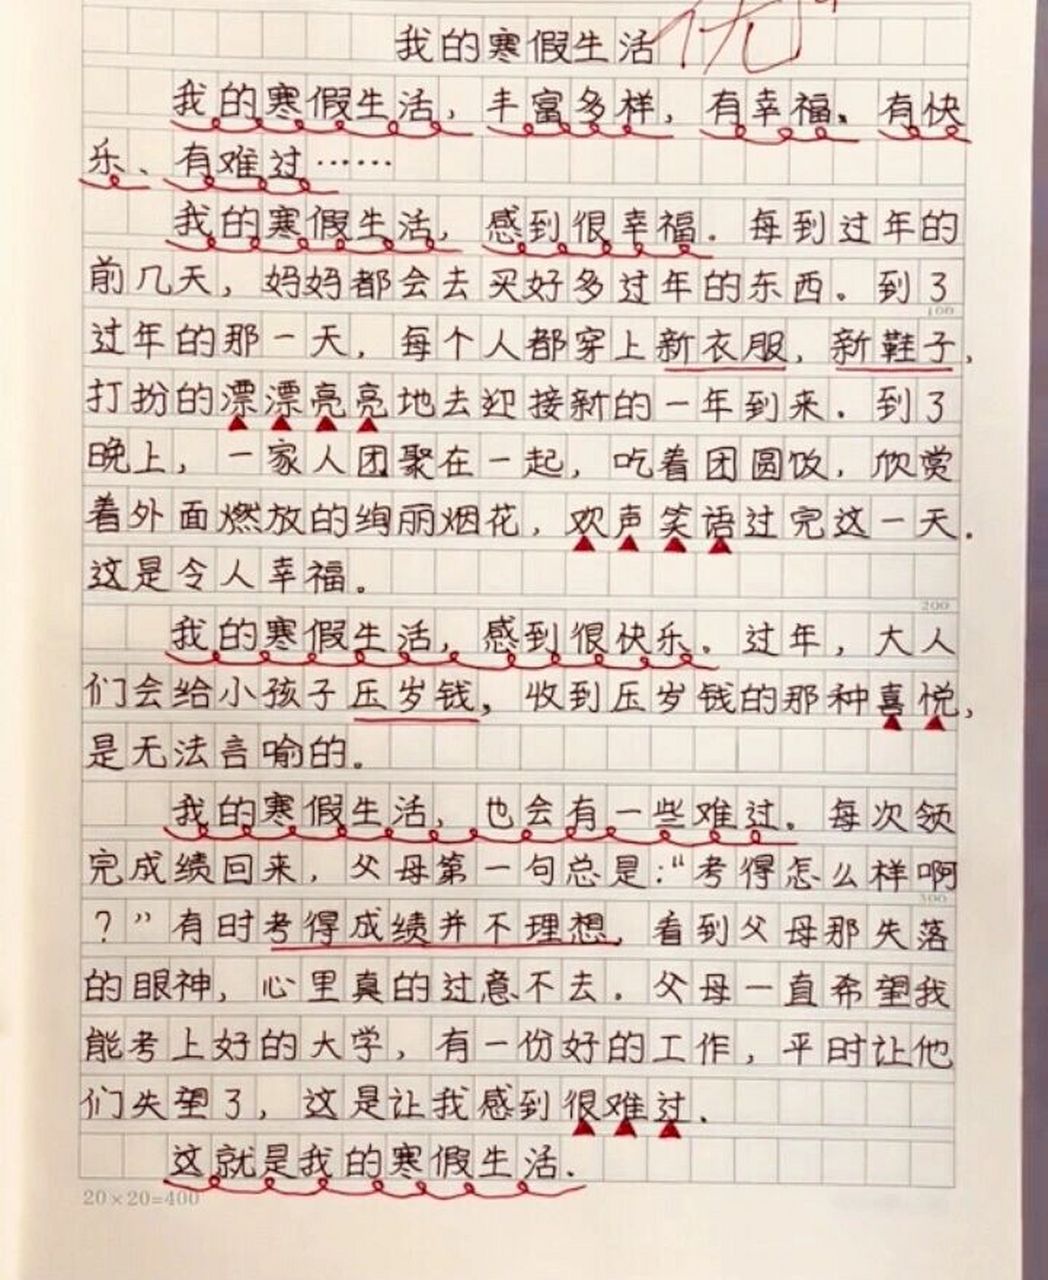 我的寒假生活 优
我的寒假生活，丰富多样，有幸福、有快
乐、有难过……
我的寒假生活，感到很幸福。每到过年的
前几天，妈妈都会去买好多过年的东西。到了
100
过年的那一天，每个人都穿上新衣服，新鞋子，
打扮的漂漂亮亮地去迎接新的一年到来。到了
晚上，一家人团聚在一起，吃着团圆饭，欣赏
着外面燃放的绚丽烟花，欢声笑语过完这一天。
这是令人幸福。
200
我的寒假生活，感到很快乐。过年，大人
们会给小孩子压岁钱，收到压岁钱的那种喜悦，
是无法言喻的。
我的寒假生活，也会有一些难过。每次领
完成绩回来，父母第一句总是：“考得怎么样啊
300
？”有时考得成绩并不理想，看到父母那失落
的眼神，心里真的过意不去。父母一直希望我
能考上好的大学，有一份好的工作，平时让他
们失望了，这是让我感到很难过。
这就是我的寒假生活。
20×20=400